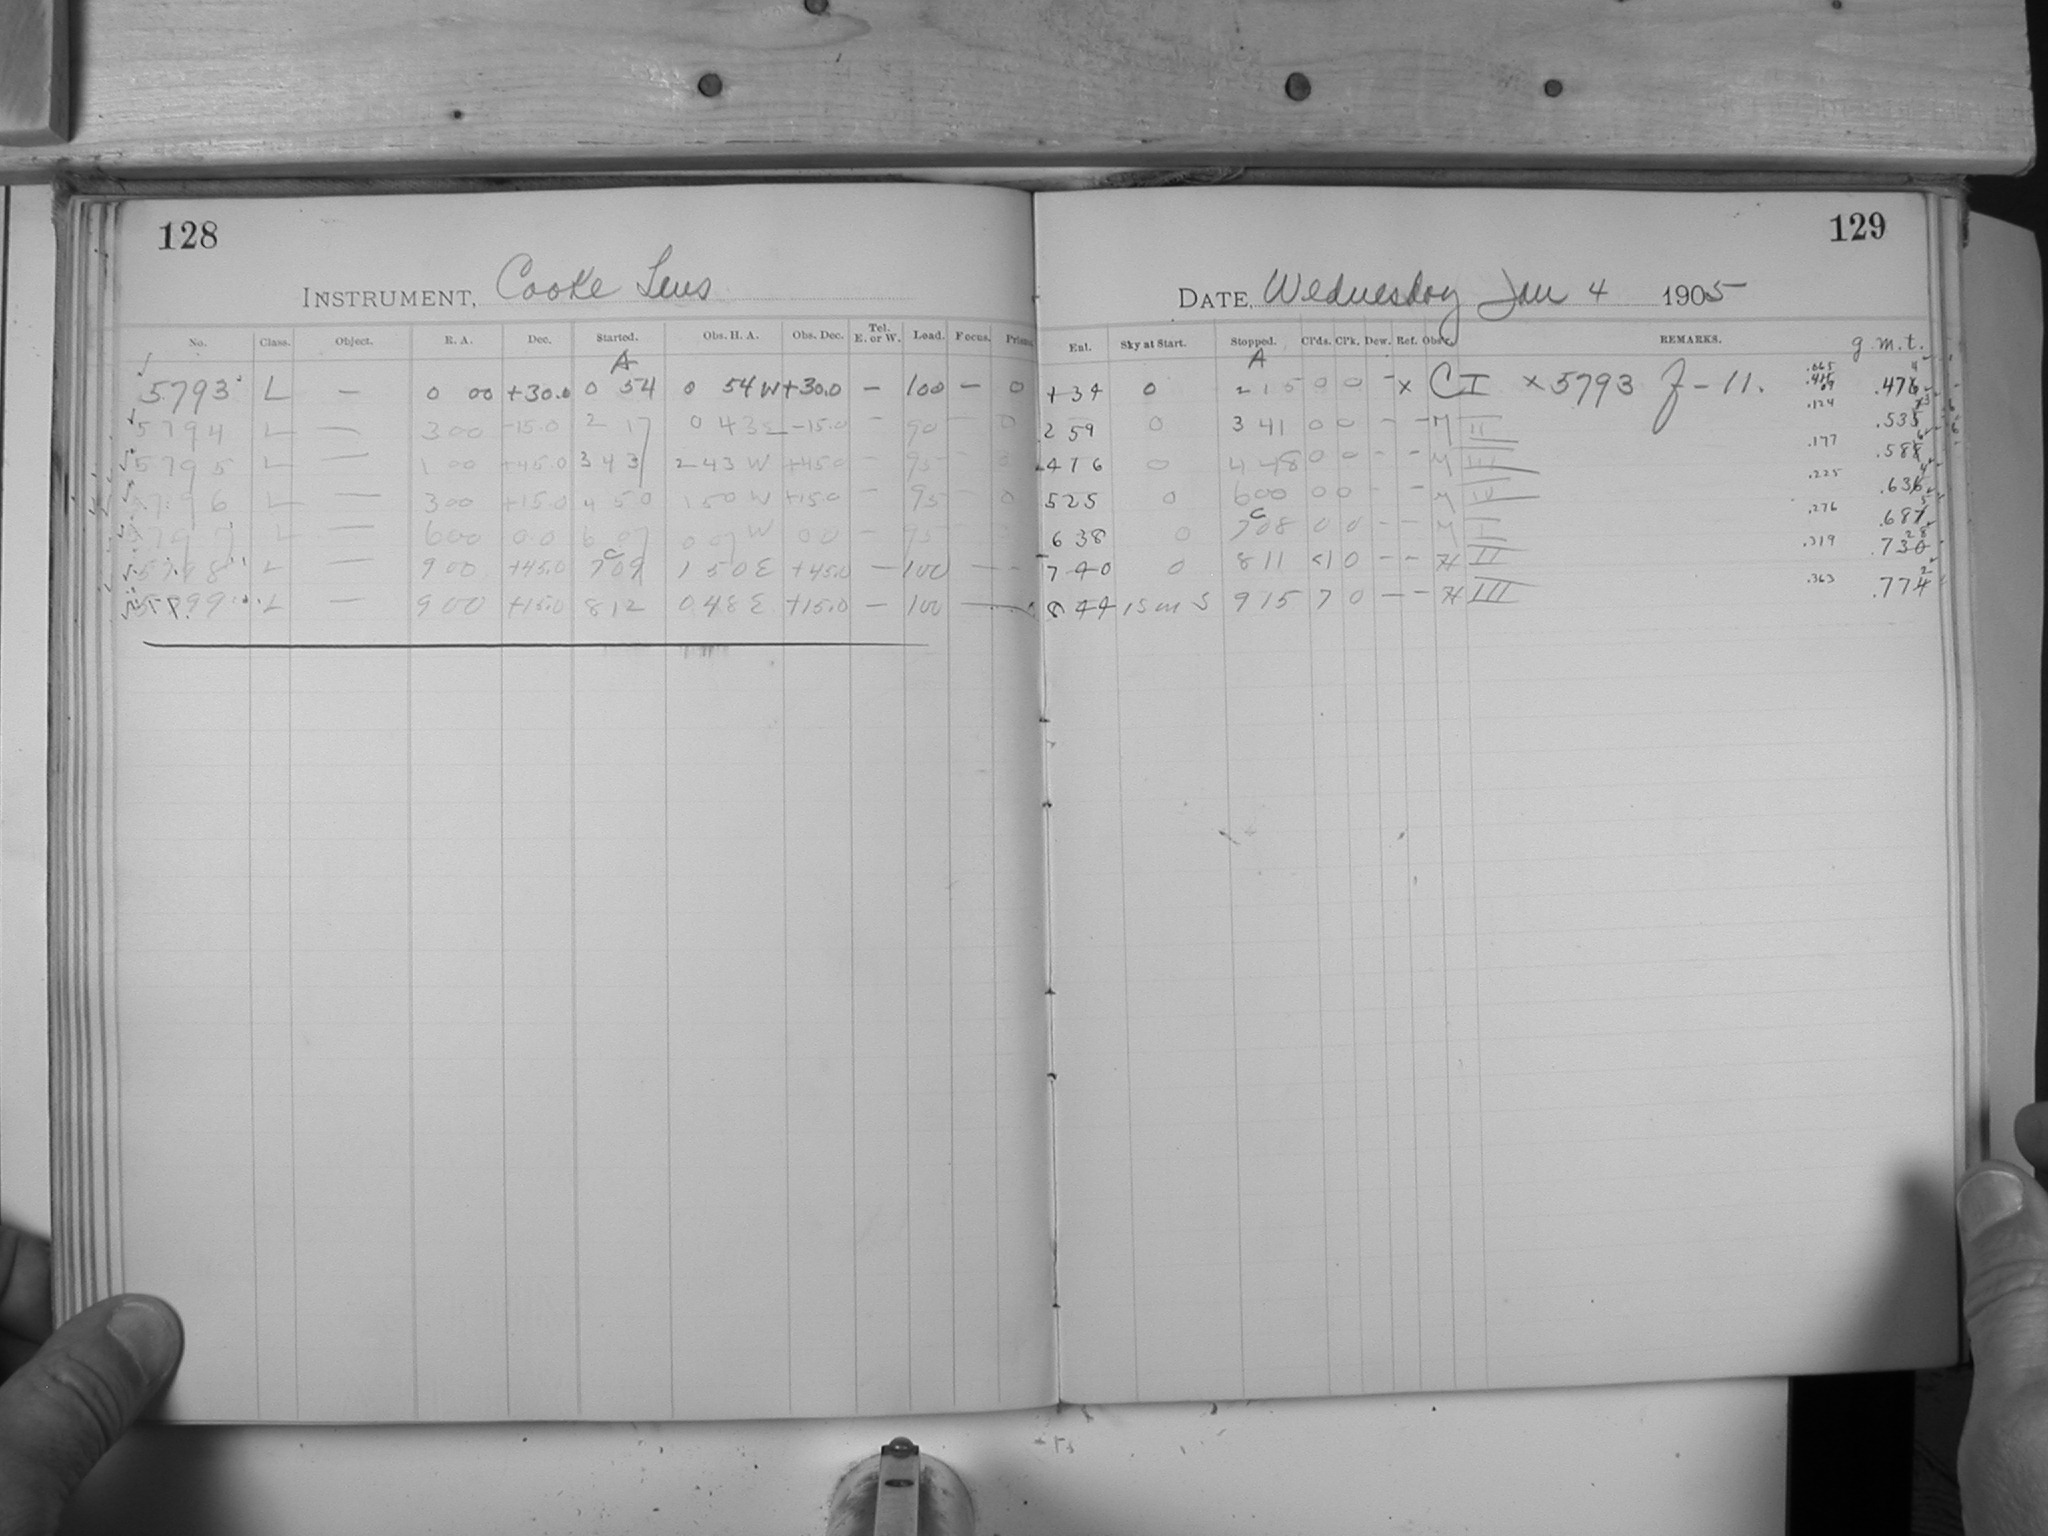 128
INSTRUMENT, Cooke Lens
No. Class. Object. R. A. Dec. Started. Obs. H. A. Obs. Dec. Tel. E. or W. Load. Focus. Prism
A
5793 L — 0 00 +30.0 0 54 0 54 W +30.0 — 100 — 0
5794 L — 3 00 -15.0 2 17 0 43 E -15.0 — 90 — 0
5795 L — 1 00 +45.0 3 43 2 43 W +45.0 — 95 — 0
5796 L — 3 00 +15.0 4 50 1 50 W +15.0 — 95 — 0
5797 L — 6 00 0.0 6 07 0 07 W 0.0 — 95
C
5798 L — 9 00 +45.0 7 09 1 50 E +45.0 — 100 — —
5799 L — 9 00 +15.0 8 12 0 48 E +15.0 — 100 —
129
DATE, Wednesday Jan 4 1905
Ent. Sky at Start. Stopped. Cl'ds. Cl'k. Dew. Ref. Obs'r. REMARKS. g.m.t.
A
+34 0 2 15 0 0 - x C I x 5793 J - 11. .476
.124
2 59 0 3 41 0 0 - - M II .535
.177
476 0 4 48 0 0 - - M III .588
.225
525 0 6 00 0 0 - - M IV .636
C
.276
638 0 7 08 0 0 - - M I .687
.319
740 0 8 11 <1 0 - - H II .730
.363
844 15 m S 9 15 7 0 - - H III .774